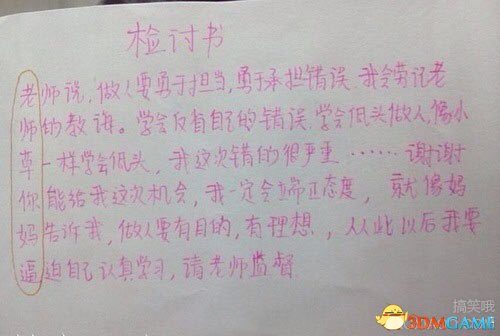 检讨书
老师说，做人要勇于担当，勇于承担错误。我会劳记老
师的教诲。学会仅有自己的错误，学会低头做人，像小
草一样学会低头，我这次错的很严重……谢谢
你能给我这次机会，我一定会端正态度，就像妈
妈告诉我，做人要有目的，有理想，从此以后我要
逼迫自己认真学习，请老师监督
搞笑哦
3DMGAME